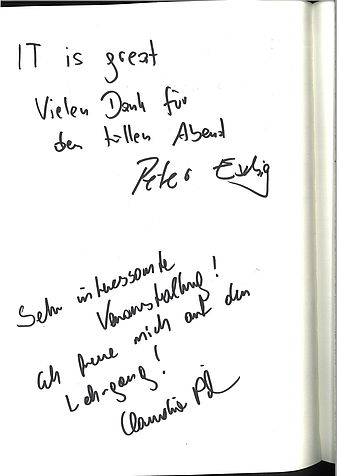 IT is great
Vielen Dank für
den tollen Abend
Peter
Sehr interessante
Veranstaltung!
Ich freue mich auf den
Lehrgang!
Claudia